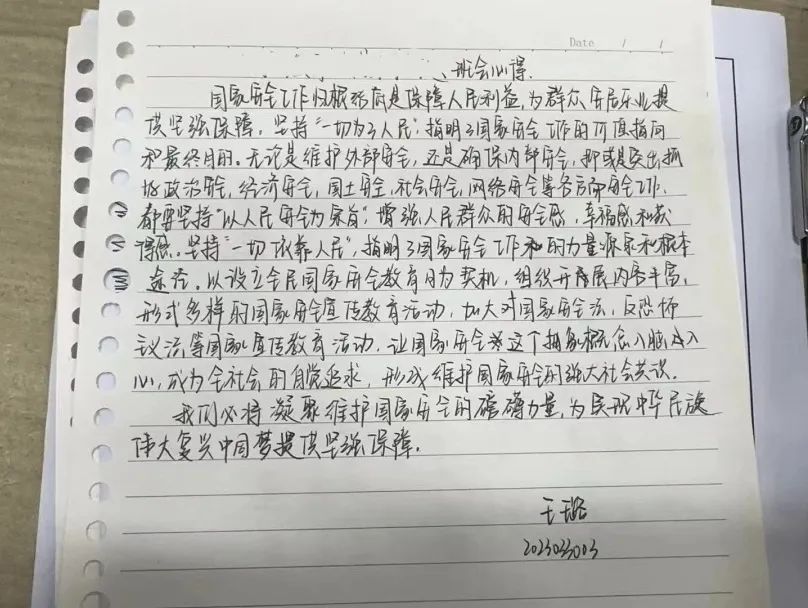 Date / /
班会心得
国家安全工作归根结底是保障人民利益,为群众安居乐业提
供坚强保障。坚持“一切为了人民”,指明了国家安全工作的价值指向
和最终目的。无论是维护外部安全,还是确保内部安全,抑或是突出抓
好政治安全,经济安全,国土安全,社会安全,网络安全等各方面安全工作,
都要坚持“以人民安全为宗旨”,增强人民群众的安全感,幸福感和获
得感。坚持“一切依靠人民”,指明了国家安全工作和的力量源泉和根本
途径。以设立全民国家安全教育日为契机,组织开展内容丰富,
形式多样的国家安全宣传教育活动,加大对国家安全法,反恐怖
议法等国家宣传教育活动,让国家安全这个抽象概念入脑入
心,成为全社会的自觉追求,形成维护国家安全的强大社会共识。
我们必将凝聚维护国家安全的磅礴力量,为实现中华民族
伟大复兴中国梦提供坚强保障。
王璐
2023033003